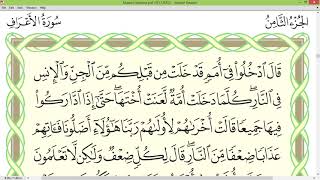 الجُزْءُ الثَّامِنُ
سُورَةُ الأَعْرَافِ
قَالَ ٱدْخُلُوا۟ فِىٓ أُمَمٍ قَدْ خَلَتْ مِن قَبْلِكُم مِّنَ ٱلْجِنِّ وَٱلْإِنسِ
فِى ٱلنَّارِ ۖ كُلَّمَا دَخَلَتْ أُمَّةٌ لَّعَنَتْ أُخْتَهَا ۖ حَتَّىٰٓ إِذَا ٱدَّارَكُوا۟
فِيهَا جَمِيعًا قَالَتْ أُخْرَىٰهُمْ لِأُولَىٰهُمْ رَبَّنَا هَٰٓؤُلَآءِ أَضَلُّونَا فَـَٔاتِهِمْ
عَذَابًا ضِعْفًا مِّنَ ٱلنَّارِ ۖ قَالَ لِكُلٍّ ضِعْفٌ وَلَٰكِن لَّا تَعْلَمُونَ